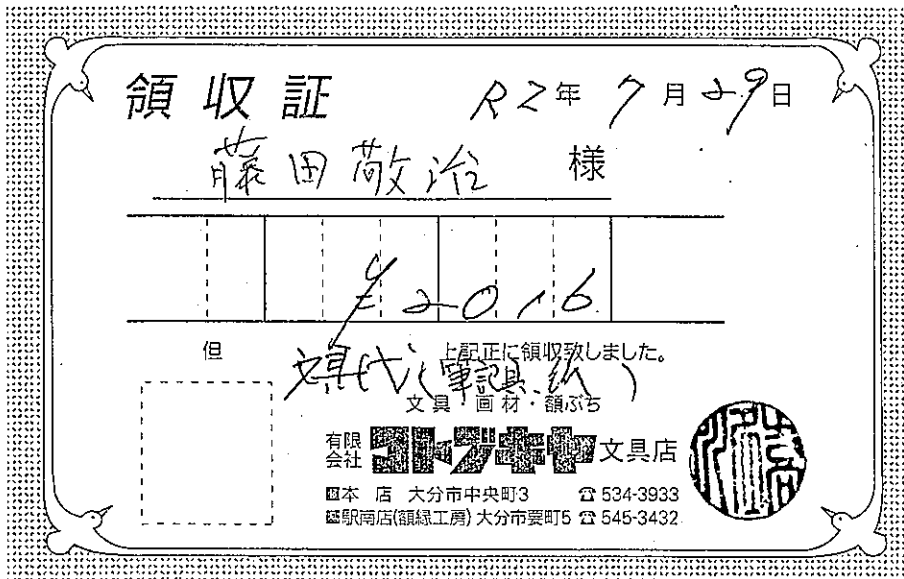 領収証 R2年 7月29日
藤田敬治 様
¥2016
但 上記正に領収致しました。
文具代(筆記具、紙)
文具・画材・額ぶち
有限会社 コトブキヤ 文具店
本 店 大分市中央町3 ☎534-3933
駅南店(額縁工房)大分市要町5 ☎545-3432